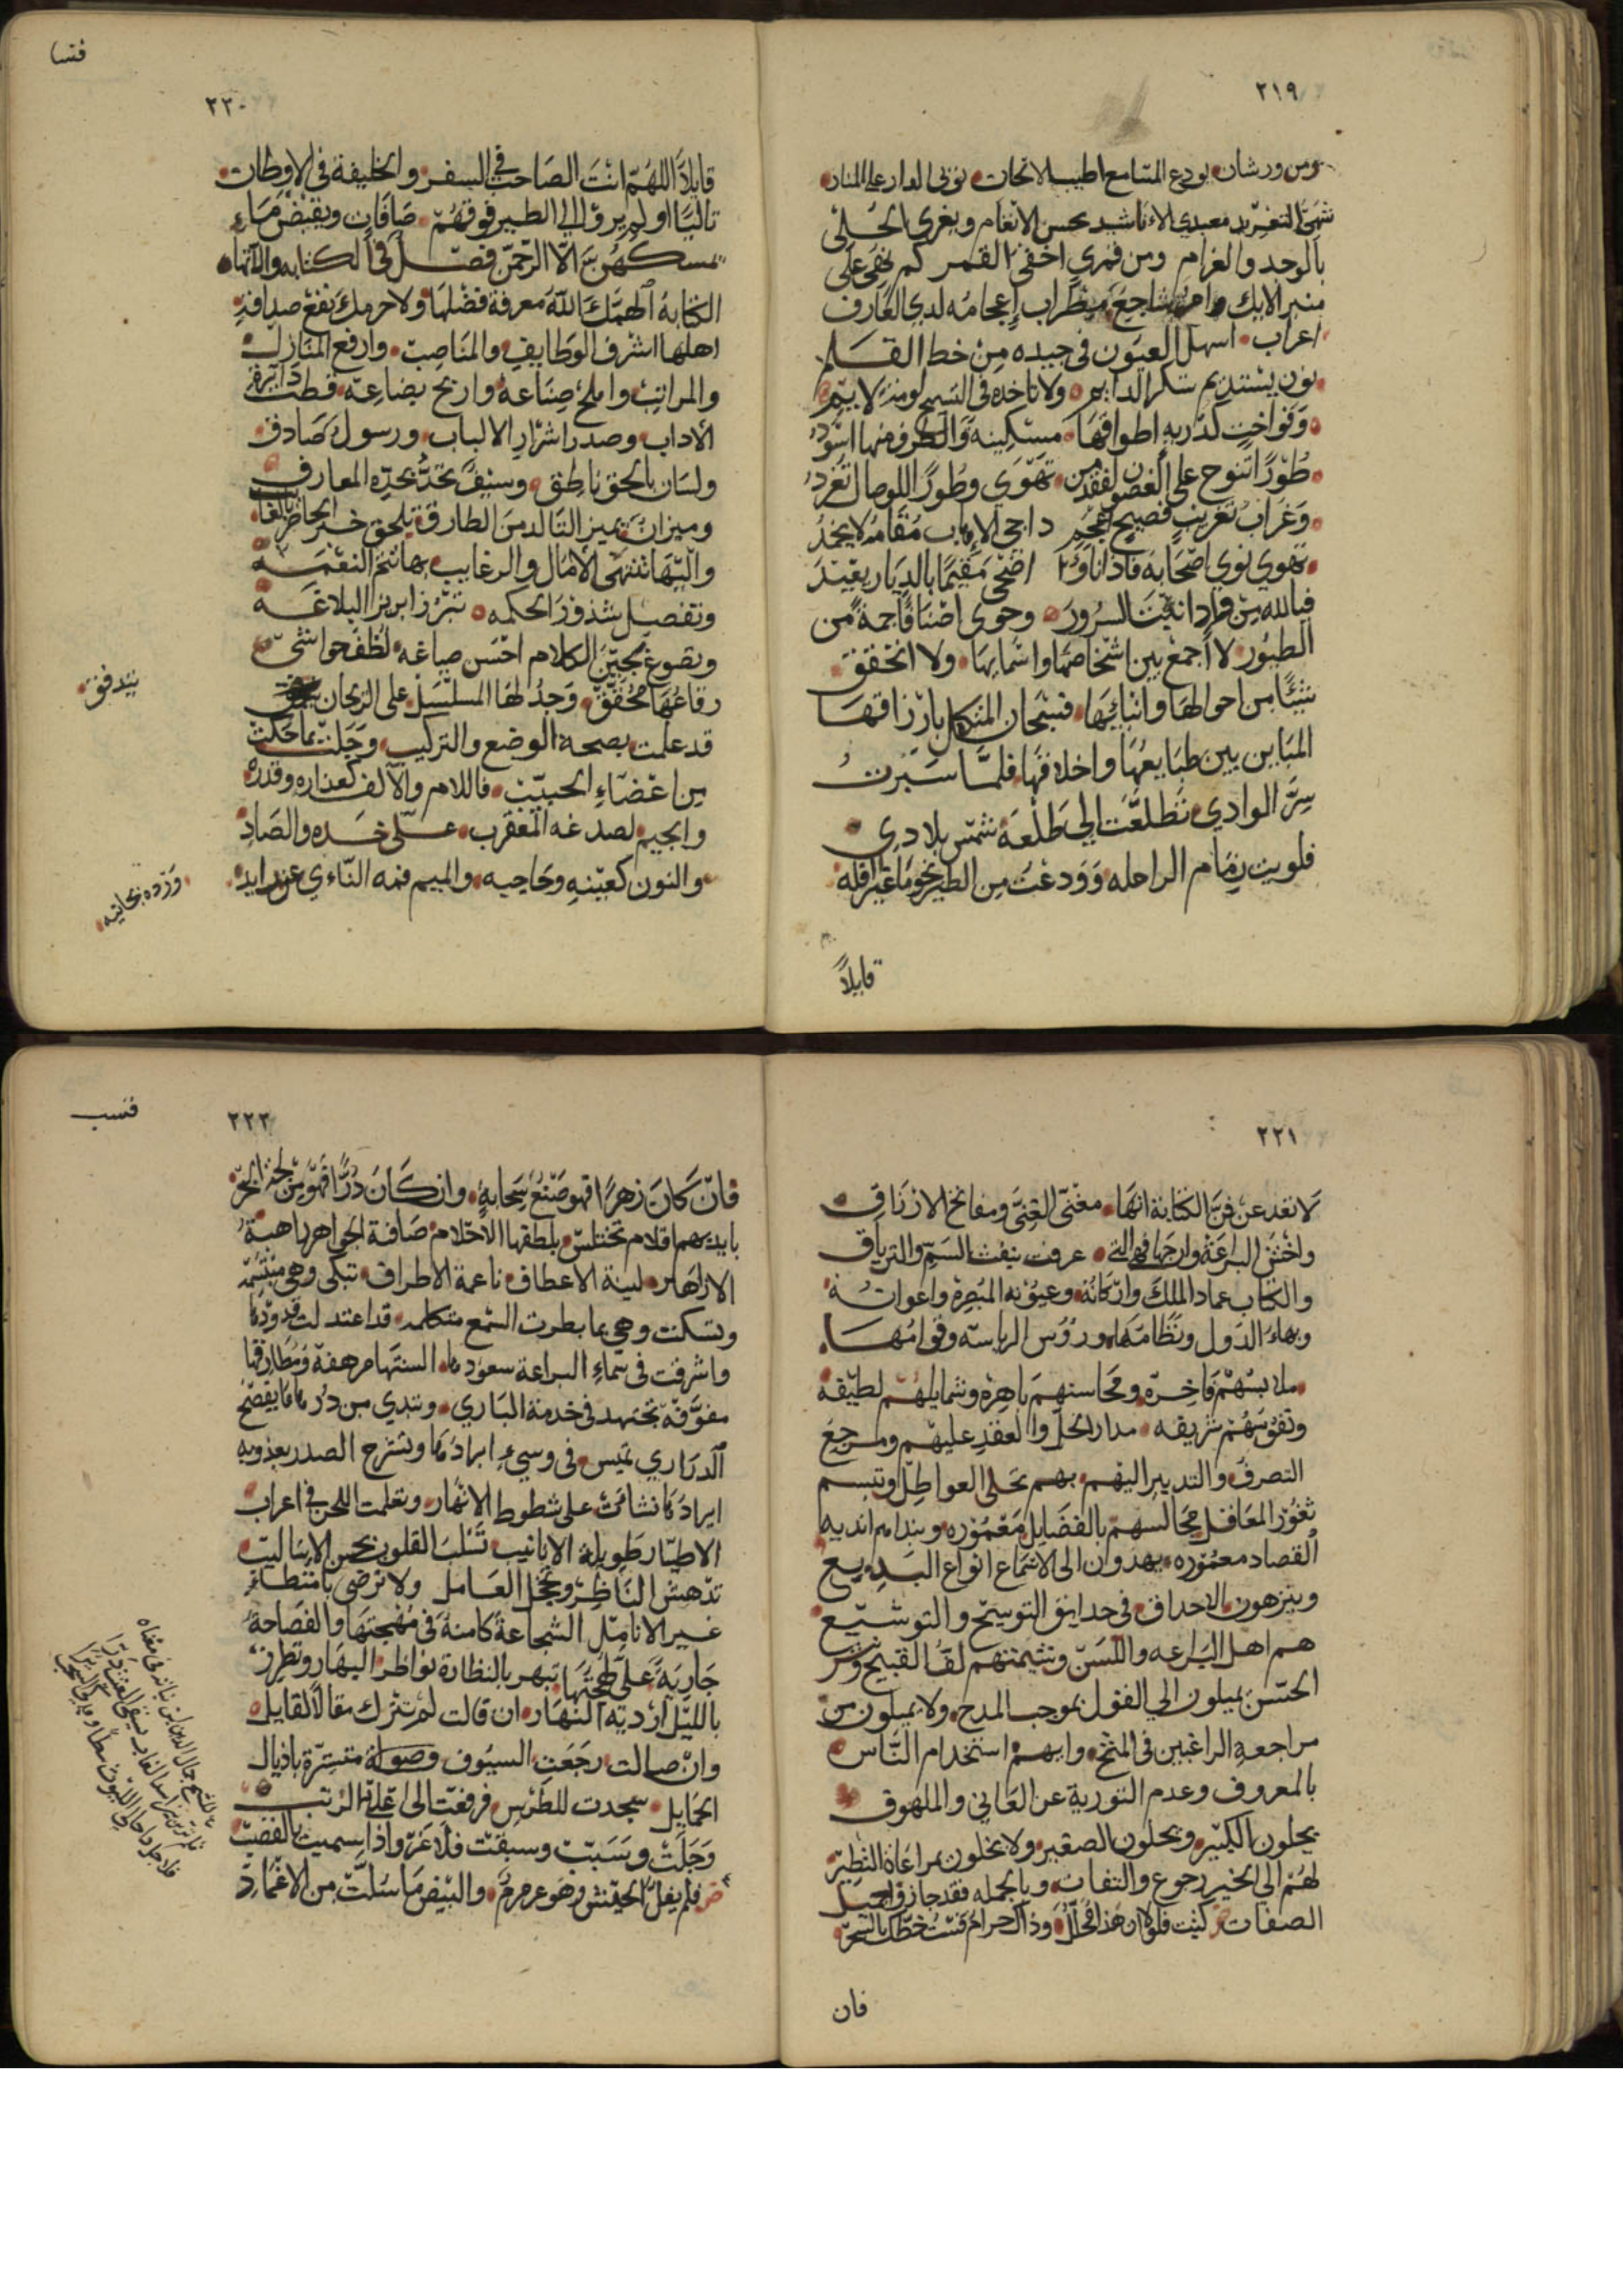 ٢١٩
ومن ورشان يودع المسامع اطيب الالحان
شهي التغريد معبدي الاناشيد بحسن الانغام ويغري الخلي
بالوجد والغرام ومن قمري اخفى القمر كم نعى على
منبر الايك ساجع مطراب إعجامه لدي العارف
اعراب اسهل العيون في جيده من خط القلم
نون يستديم شكر الدايم ولا تاخذه في التسبيح لومة لايم
وفواخت كدرية اطواقها مسكينة والطرف منها اسود
طورًا تنوح على الغصون لفقد من تهوي وطورًا للوصال تغرد
وغراب تغريب فصيح اعجم داجي الاهاب مقامه لا يحمد
يهوي نوي اصحابه فاذا ناوا اضحى مقيمًا بالديار يعيد
فيالله من واد انبت السرور وحوى اصنافًا جمة من
الطيور لا اجمع بين اشخاصها واسمايها ولا اتحقق
شيئًا من احوالها وانبايها فسبحان المتكفل بارزاقها
المباين بين طبايعها واخلاقها فلما سبرت
سر الوادي تطلعت الي طلعة شمس بلادي
فلويت زمام الراحلة وودعت من الطير نجومًا غير افلة
قايلاً
فسا
٢٢٠
قايلاً اللهم انت الصاحب في السفر والخليفة في الاوطان
تاليًا اولم يروا الي الطير فوقهم صافات ويقبضن ما
يمسكهن الا الرحمن فصل في الكتابة والانها
الكتابة الهمك الله معرفة فضلها ولا حرمك نفع صداقة
اهلها اشرف الوظايف والمناصب وارفع المنازل
والمراتب واملح صناعة واربح بضاعة قطب دايرة
الاداب وصدر اسرار الالباب ورسول صادق
ولسان بالحق ناطق وسيف تحد بحده المعارف
وميزان يميز التالد من الطارق يلحق خبر الحاضر بالغا
واليها تنتهى الامال والرغايب بها تتم النعمة
وتفصيل شذور الحكمه تبرز ابريز البلاغه
وتصوغ لجين الكلام احسن صياغه لطف حواشي
رقاعها محقق وجد ولها المسلسل على الريحان
يتدفق
قد علمت بصحة الوضع والتركيب وجلت بما حكت
من اعضاء الحبيب فاللام والالف كعذاره وقده
والجيم لصدغه المعقرب على خده والصاد
والنون كعينه وحاجبه والميم فمه النائي عن رايد
ورده بجانبه
٢٢١
لا تعد عن فن الكتابة انها مغنى الغنى ومفاتح الارزاق
واخش اليراعة وارجها فهي التي عرفت بنفث السم والترياق
والكتاب عماد الملك واركانه وعيونه المبصرة واعوانه
وبهاء الدول ونظامها ورؤس الرياسه وقوامها
ملابسهم فاخرة ومحاسنهم باهرة وشمايلهم لطيفة
ونفوسهم شريفه مدار الحل والعقد عليهم ومرجع
التصرف والتدبير اليهم بهم تحلى العواطل وتبسم
ثغور المعاقل مجالسهم بالفضايل معمورة وبندايهم انديه
القصاد معموره يهدون الى الاسماع انواع البديع
وينزهون الاحداق في حدايق التوسيح والتوشيع
هم اهل البراعه واللسن وشيمتهم لقا القبيح ونشر
الحسن يميلون الي القول بموجب المدح ولا يميلون من
مراجعة الراغبين في المنح وابهم استخدام الناس
بالمعروف وعدم التورية عن العاني والملهوف
يجلون الكبير ويجلون الصغير ولا يخلون بمراعاة النظير
لهم الى الخير رجوع والتفات وبالجملة فقد حازوا جميل
الصفات كتبت فلولا ان هذا محلل وذاك حرام قست خطك بالسحر
فان
فسب
٢٢٢
فان كان زهرًا فهو صنع سحابة وان كان درًا فهو من لجة البحر
بايديهم اقلام تختلس بلطفها الاحلام صافة الجواهر باهية
الازاهر لينة الاعطاف ناعمة الاطراف تبكى وهي مبتسمه
وتسكت وهي بما يطرب السمع متكلمه قد اعتدلت قدودها
واشرقت في سماء البراعة سعودها السنتها مرهفة ومطارفها
مفوفة تجتهد في خدمة الباري وتبدي من دررها ما يفضح
الدراري تميس في وشيء ابرادها وتشرح الصدر بعذوبه
ايرادها نشات على شطوط الانهار وتعلمت اللحن في اعراب
الاطيار طويلة الانابيب تسلب القلوب بحسن الاساليب
تدهش الناظر وتخجل العامل ولا ترضى بامتطاء
غير الانامل الشجاعة كامنة في مهجتها والفصاحة
جارية على لهجتها تبهر بالنظارة نواظر البهار وتطرز
بالليل اردية النهار ان قالت لم تترك مقالاً لقايل
وان صالت رجعت السيوف متسترة باذيال
الحمايل سجدت للطرس فرفعت الى اعلى الرتب
وجلت وسبت وسبقت فلا غرو اذا سميت بالقصب
فلم يفل الجيش وهو عرمرم والبيض ما سلت من الاغماد